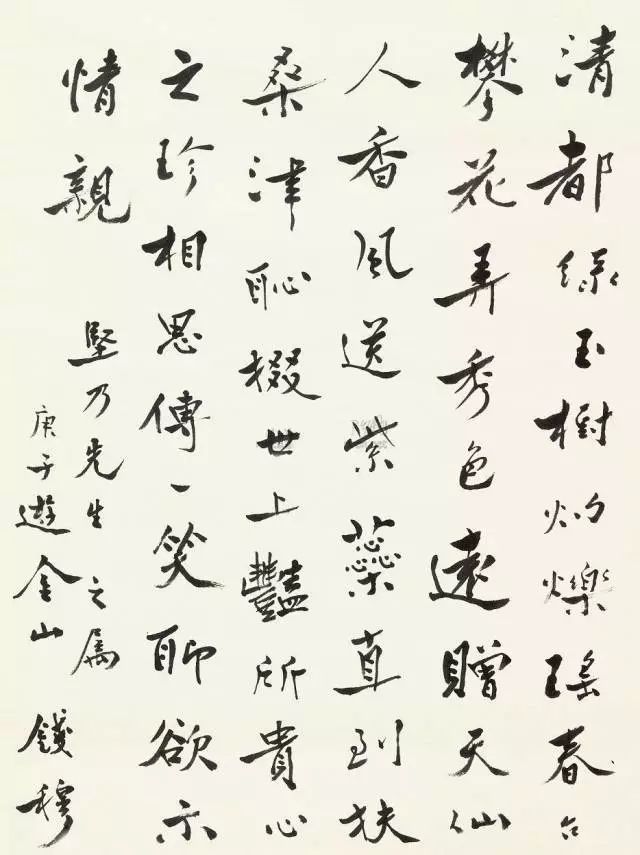 清都綠玉樹灼爍瑤春台
攀花弄秀色遠贈天仙
人香風送紫蘂直到扶
桑津恥掇世上豔所貴心
之珍相思傳一笑聊欲示
情親
堅乃先生之属
庚子遊金山 錢穆